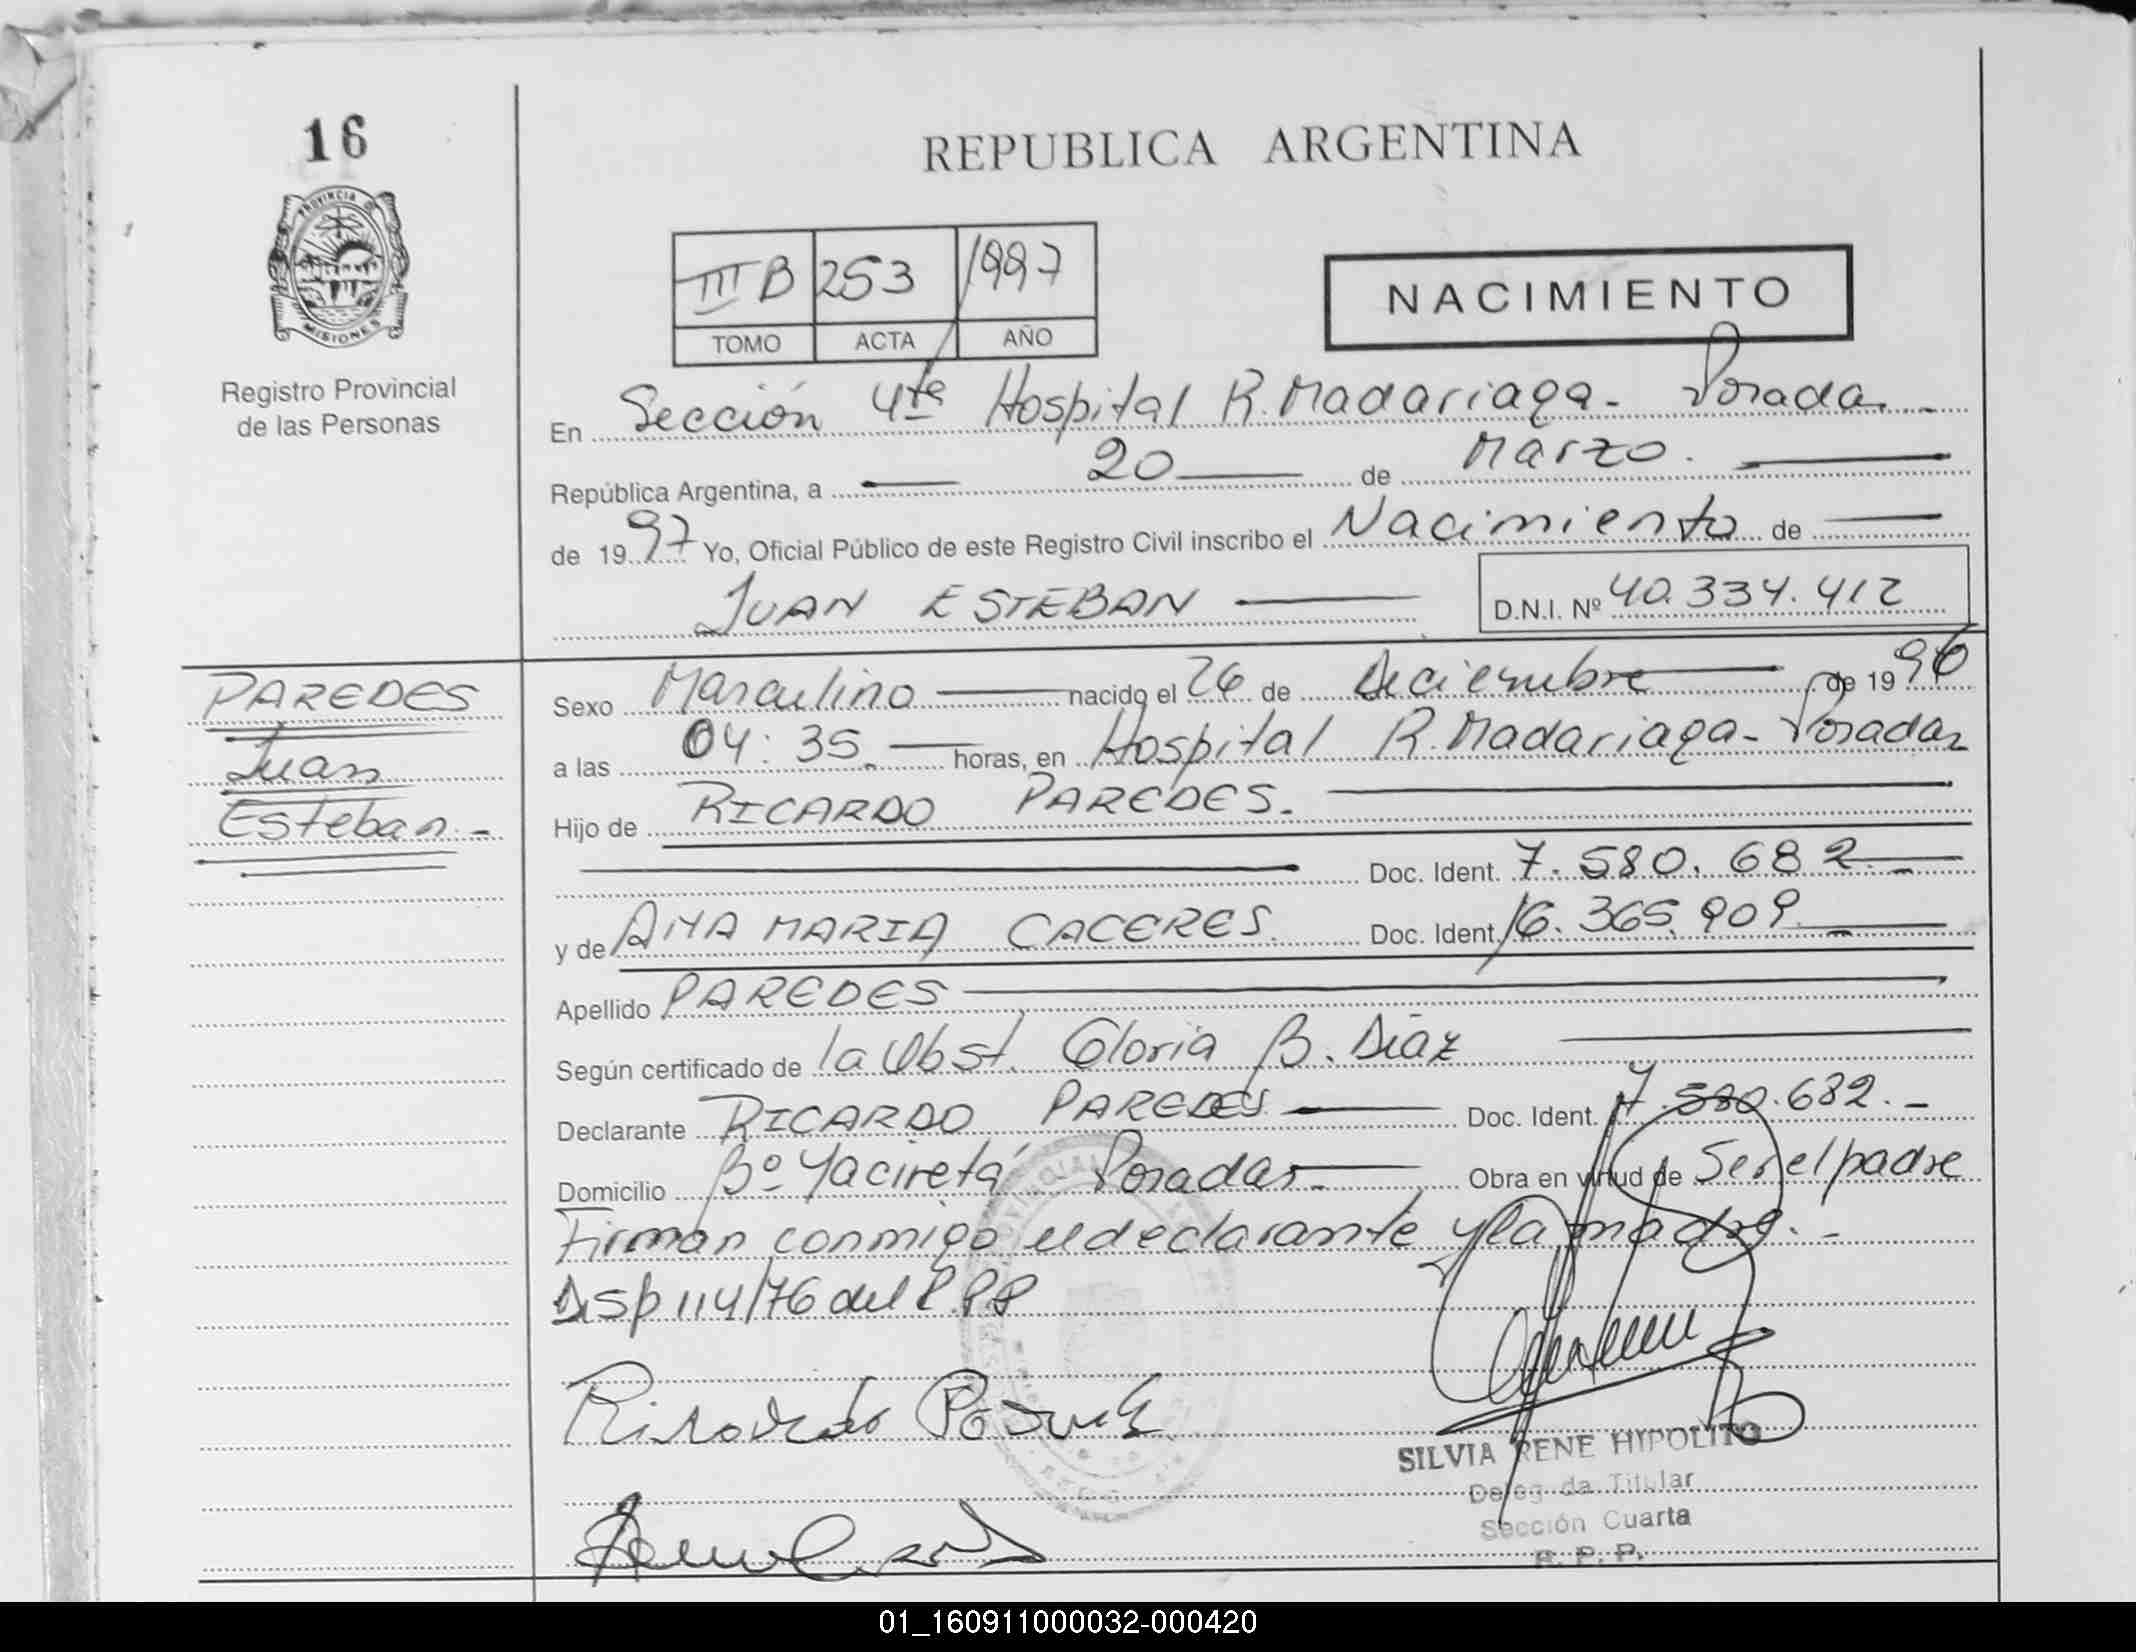 16
PROVINCIA DE
MISIONES
Registro Provincial
de las Personas
REPUBLICA ARGENTINA
III B 253 1997
TOMO ACTA AÑO
NACIMIENTO
En Sección 4ta Hospital R. Madariaga - Posadas. -
República Argentina, a 20 de Marzo.
de 1997 Yo, Oficial Público de este Registro Civil inscribo el Nacimiento de
JUAN ESTEBAN D.N.I. Nº 40.334.412
PAREDES
Juan
Esteban. -
Sexo Masculino nacido el 26 de Deciembre de 1996
a las 04:35. horas, en Hospital R. Madariaga - Posadas
Hijo de RICARDO PAREDES.
Doc. Ident. 7.580.682. -
y de ANA MARIA CACERES. Doc. Ident. 16.365.909. -
Apellido PAREDES
Según certificado de la Obst. Gloria B. Diaz
Declarante RICARDO PAREDES Doc. Ident. 7.580.682. -
Domicilio Bº Yaciretá Posadas. - Obra en virtud de Ser el padre
Firman conmigo el declarante y la madre. -
Disp 114/76 del R.P.P
Ricardo Paredes
SILVIA RENE HIPOLITO
Delegada Titular
Sección Cuarta
R. P. P.
01_160911000032-000420